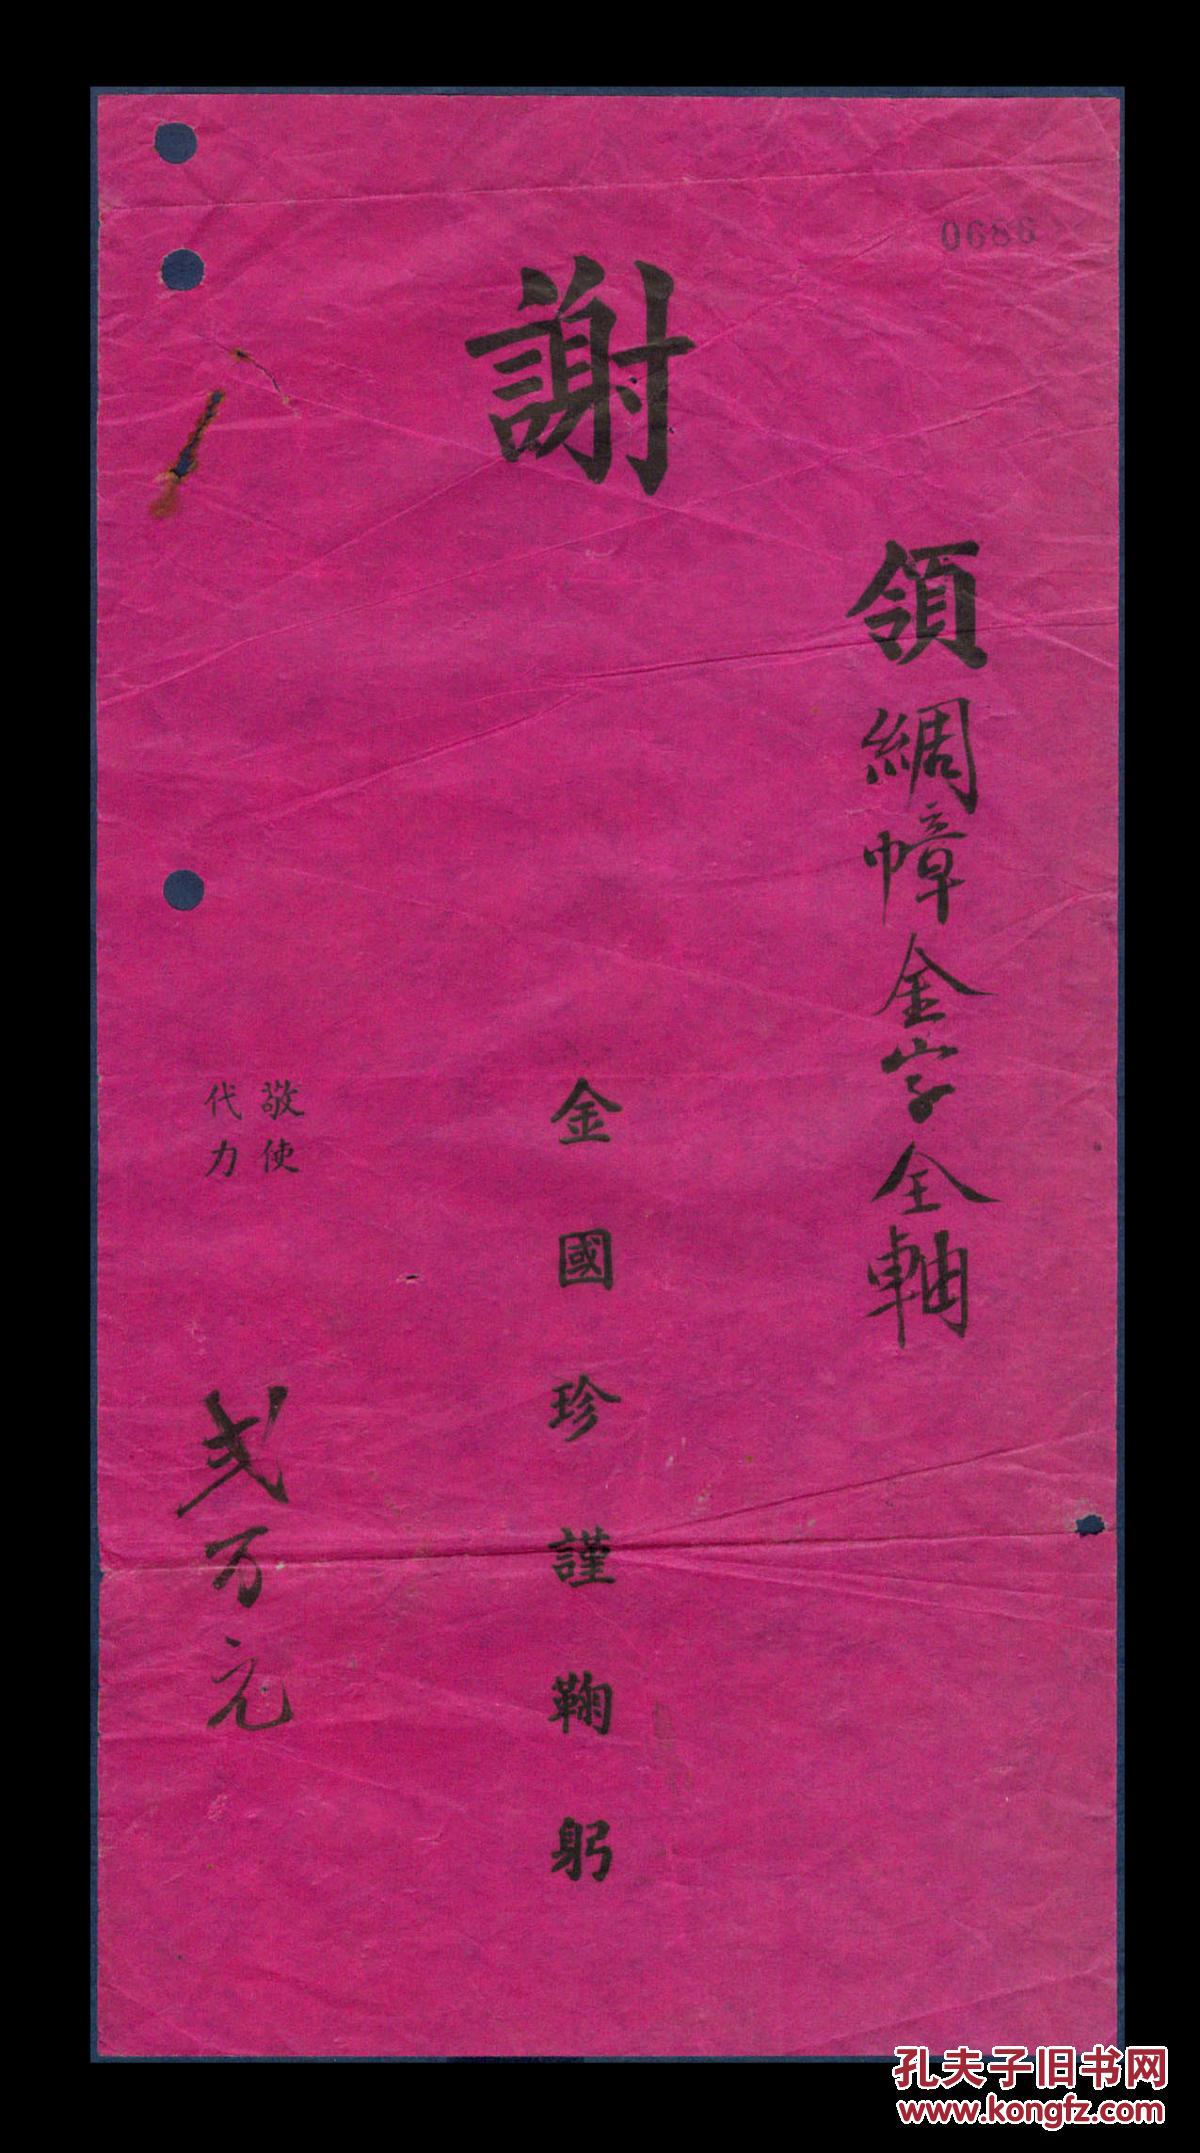 0686
領綢幛金字全軸
謝
金國珍謹鞠躬
敬使
代力
弍万元
孔夫子旧书网
www.kongfz.com